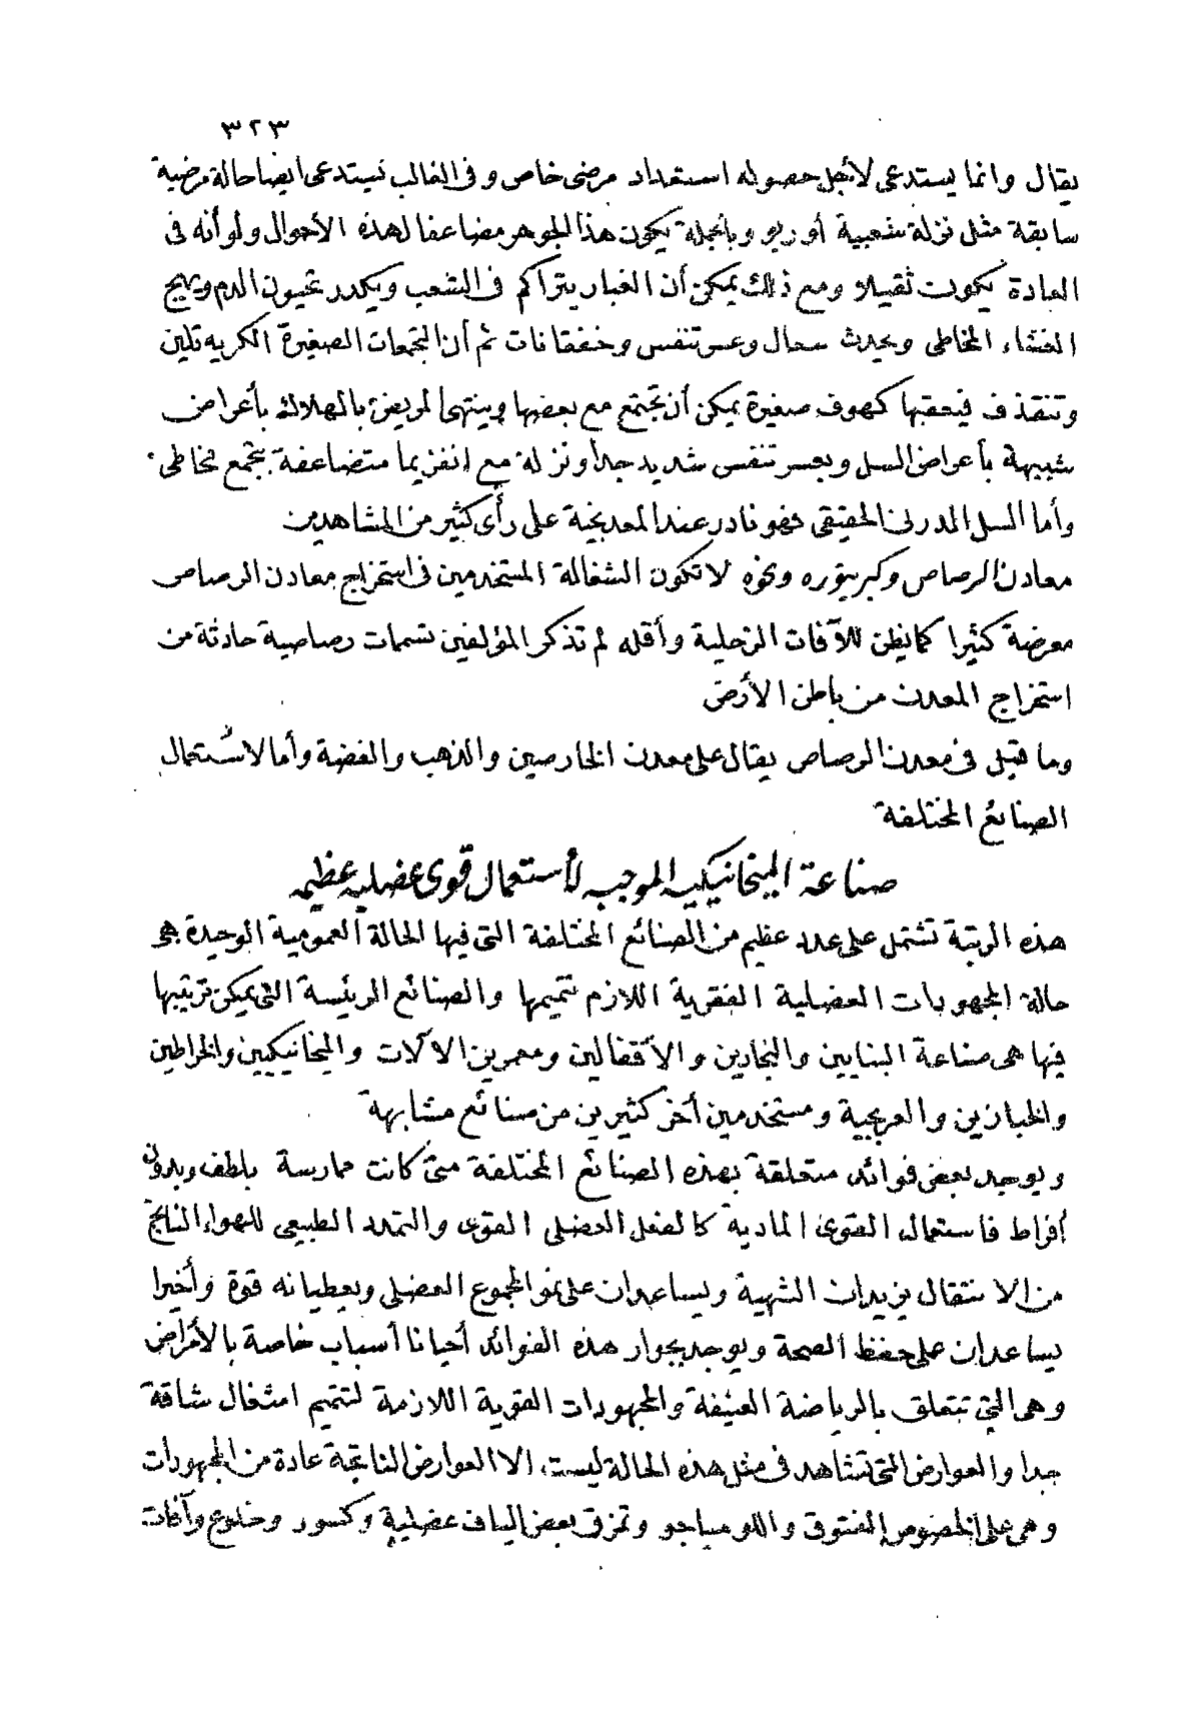 ٣٢٣
يقال وانما يستدعى لاجل حصوله استعداد مرضى خاص وفى الغالب تستدعى ايضا حالة مرضية
سابقة مثل نزلة شعبية أو ربو وبالجملة يكون هذا الجوهر مضاعفا لهذه الأحوال ولو أنه فى
العادة يكون ثقيلا ومع ذلك يمكن أن الغبار يتراكم فى الشعب ويكدر تحبون الدم ويهيج
الغشاء المخاطى ويحدث سعال وعسر تنفس وخفقانات ثم أن التجمعات الصغيرة الكريه تلين
وتنقذف فيعقبها كهوف صغيرة يمكن أن تجتمع مع بعضها وينتهى المريض بالهلاك بأعراض
شبيهة بأعراض السل وبعسر تنفس شديد جدا ونزلة مع انفزيما متضاعفة بتجمع مخاطى
وأما السل المدرنى الحقيقى فهو نادر عند المعدنجية على رأى كثير من المشاهدين
معادن الرصاص وكبريتوره ونحوه لا تكون الشغالة المستخدمين فى استخراج معادن الرصاص
معرضة كثيرا كما يظن للآفات الزحلية وأقله لم تذكر المؤلفين تسممات رصاصية حادثة من
استخراج المعدن من باطن الأرض
وما قيل فى معدن الرصاص يقال على معدن الخارصين والذهب والفضة وأما لاستعمال
الصنايع المختلفة
صناعة الميخانيكيه الموجبه لأستعمال قوى عضليه عظيمه
هذه الرتبة تشتمل على عدد عظيم من الصنائع المختلفة التى فيها الحالة العمومية الوحيدة هى
حالة المجهوبات العضلية الفقرية اللازم تتميمها والصنائع الرئيسة التى يمكن ترتيبها
فيها هى صناعة البنايين والنجارين والأقفالين ومعمرين الآلات والميخانيكيين والخراطين
والخبازين والعربجية ومستخدمين أخر كثيرين من صنائع مشابهة
ويوجد بعض فوائد متعلقة بهذه الصنائع المختلفة متى كانت ممارسة بلطف وبدون
أفراط فاستعمال القوى المادية كالفعل العضلى القوى والتمدد الطبيعى للهواء الناتج
من الانتقال يزيدان الشهية ويساعدان على نمو المجموع العضلى ويعطيانه قوة وأخيرا
يساعدان على حفظ الصحة ويوجد بجوار هذه الفوائد أحيانا أسباب خاصة بالأمراض
وهى التى تتعلق بالرياضة العنيفة والمجهودات القوية اللازمة لتتميم اشغال شاقة
جدا والعوارض التى تشاهد فى مثل هذه الحالة ليست الا العوارض الناتجة عادة من المجهودات
وهى على الخصوص الفتوق واللومباجو وتمزق بعض الياف عضلية وكسور وخلوع وآفات